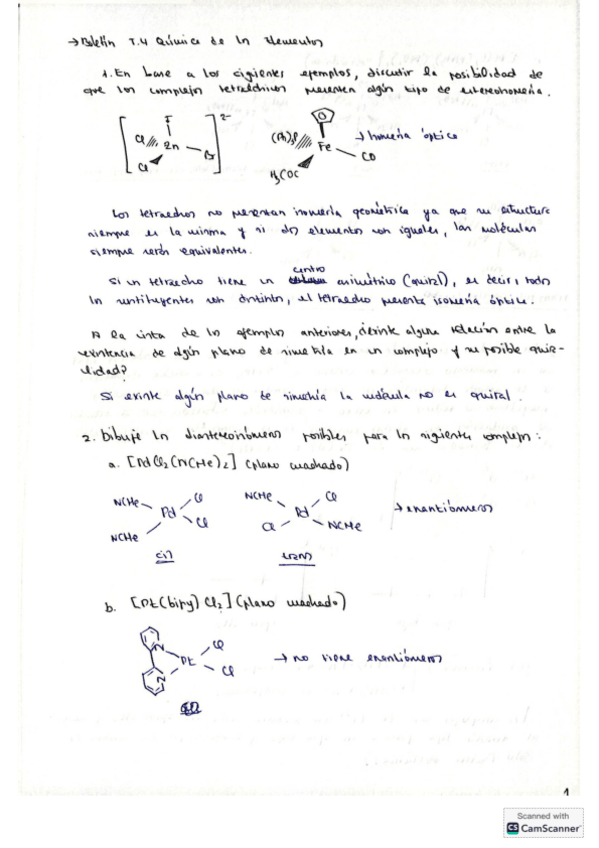 → Boletín T.4 Química de los Elementos
1. En base a los siguientes ejemplos, discutir la posibilidad de
que los complejos tetraédricos presenten algún tipo de estereoisomería.
[ F 2-
Cl Zn Br
Cl ]
(Ph)3P Fe CO
H3COC
→ Isomería óptica
Los tetraedros no presentan isomería geométrica ya que su estructura
siempre es la misma y si dos elementos son iguales, las moléculas
siempre serán equivalentes.
centro
Si un tetraedro tiene un asimétrico (quiral), es decir, todos
los sustituyentes son distintos, el tetraedro presenta isomería óptica.
A la vista de los ejemplos anteriores, ¿existe alguna relación entre la
existencia de algún plano de simetría en un complejo y su posible quira-
lidad?
Si existe algún plano de simetría la molécula no es quiral.
2. Dibuje los diastereoisómeros posibles para los siguientes complejos:
a. [PdCl2(NCMe)2] (plano cuadrado)
NCMe Cl NCMe Cl
Pd Pd → enantiómeros
NCMe Cl Cl NCMe
cis trans
b. [Pt(bipy)Cl2] (plano cuadrado)
N Pt Cl → no tiene enantiómeros
N Cl
1
Scanned with
CS CamScanner